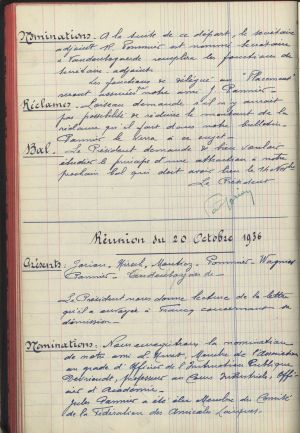 Nominations. A la suite de ce départ, le secrétaire
adjoint P. Pommier est nommé secrétaire
remplira les fonctions de
secrétaire adjoint.
Les fonctions de délégué au "Placement"
seront assurées notre ami J. Pannier.
Réclames. Loiseau demande s'il n'y aurait
pas possibilité de réduire le montant de la
réclame qu'il fait dans notre bulletin.
Pannier le verra à ce sujet.
Bal. Le Président demande de bien vouloir
étudier le principe d'une attraction à notre
prochain bal qui doit avoir lieu le 14 Novbre
Le Président
Réunion du 20 Octobre 1936
Présents: Jorian, Hirsch, Pommier - Wagner
Pannier -
Le Président nous donne lecture de la lettre
qu'il a envoyée à concernant sa
démission.
Nominations: Nous enregistrons la nomination
de notre ami Membre de l'Association
au grade d'Officier de l'Instruction Publique
professeur au Cours Industriels, Offi-
cier d'Académie.
Jules Pannier a été élu Membre du Comité
de la Fédération des Amicales Laïques.